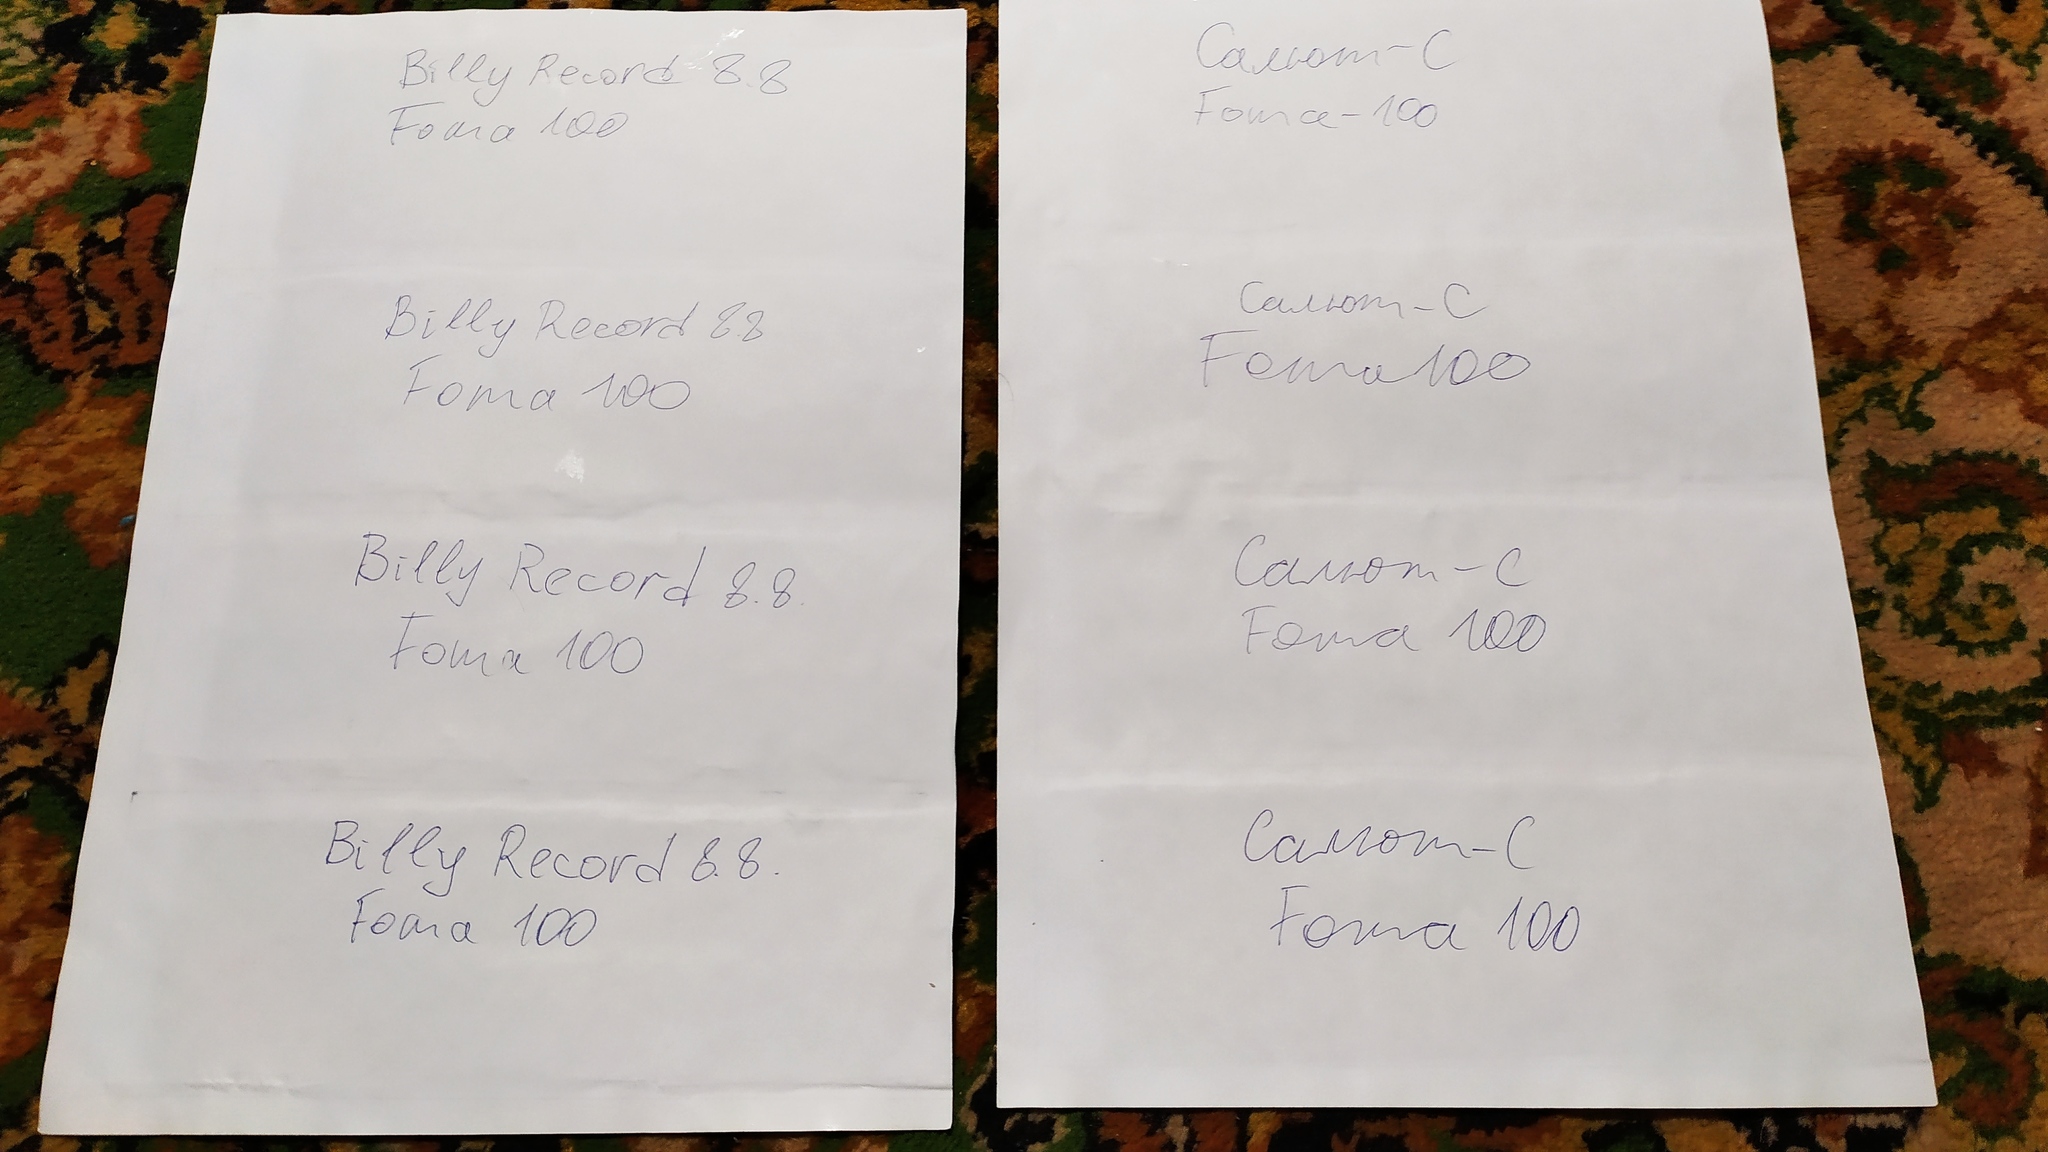 Billy Record 8.8
Foma 100
Billy Record 8.8
Foma 100
Billy Record 8.8.
Foma 100
Billy Record 8.8.
Foma 100
Салют-С
Foma-100
Салют-С
Foma 100
Салют-С
Foma 100
Салют-С
Foma 100